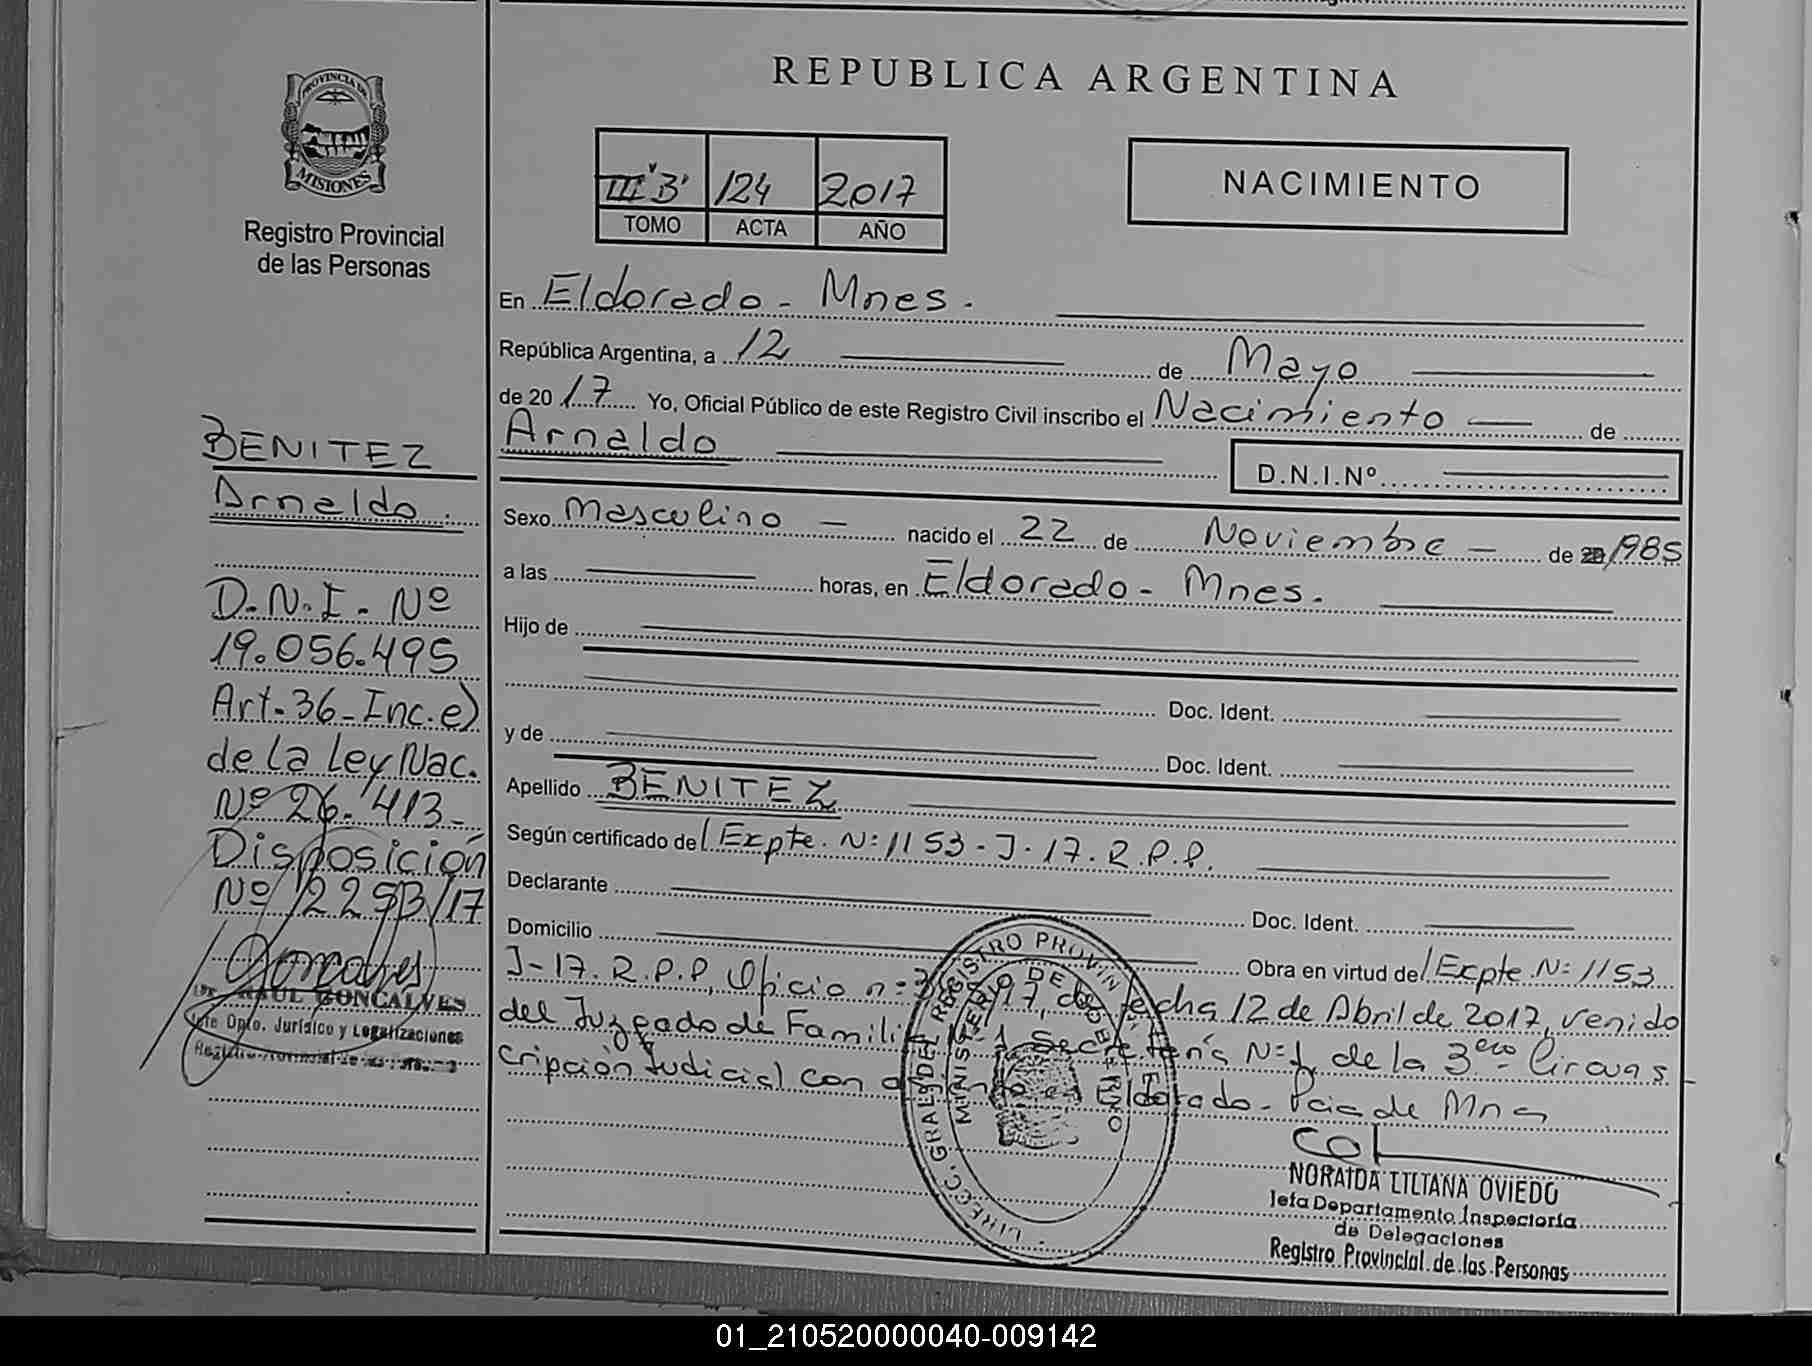 REPUBLICA ARGENTINA
PROVINCIA DE
MISIONES
Registro Provincial
de las Personas
III "B" 124 2017
TOMO ACTA AÑO
NACIMIENTO
En Eldorado - Mnes.
República Argentina, a 12 de Mayo
de 2017 Yo, Oficial Público de este Registro Civil inscribo el Nacimiento de
Arnaldo
D.N.I.Nº
Sexo Masculino nacido el 22 de Noviembre de 1985
a las horas, en Eldorado - Mnes.
Hijo de
Doc. Ident.
y de
Doc. Ident.
Apellido BENITEZ
Según certificado de Expte. N: 1153 - J - 17. R. P. P.
Declarante Doc. Ident.
Domicilio
Obra en virtud de Expte. N: 1153
J-17. R. P. P, Oficio n: fecha 12 de Abril de 2017, venido
del Juzgado de Famili Secretería N: 1, de la 3era Circuns
cripción Judicial con en Eldorado - Pcia de Mnes
BENITEZ
Arnaldo.
D.N.I - Nº
19.056.495
Art. 36 - Inc. e)
de la Ley Nac.
Nº 26.413 -
Disposición
Nº 2293/17
Goncalves
RAUL GONCALVES
Jefe Dpto. Jurídico y Legalizaciones
DIRECC. GRAL. DEL REGISTRO PROVIN
MINISTERIO DE GOBIERNO
NORAIDA LILIANA OVIEDO
Jefa Departamento Inspectoría
de Delegaciones
Registro Provincial de las Personas
01_210520000040-009142